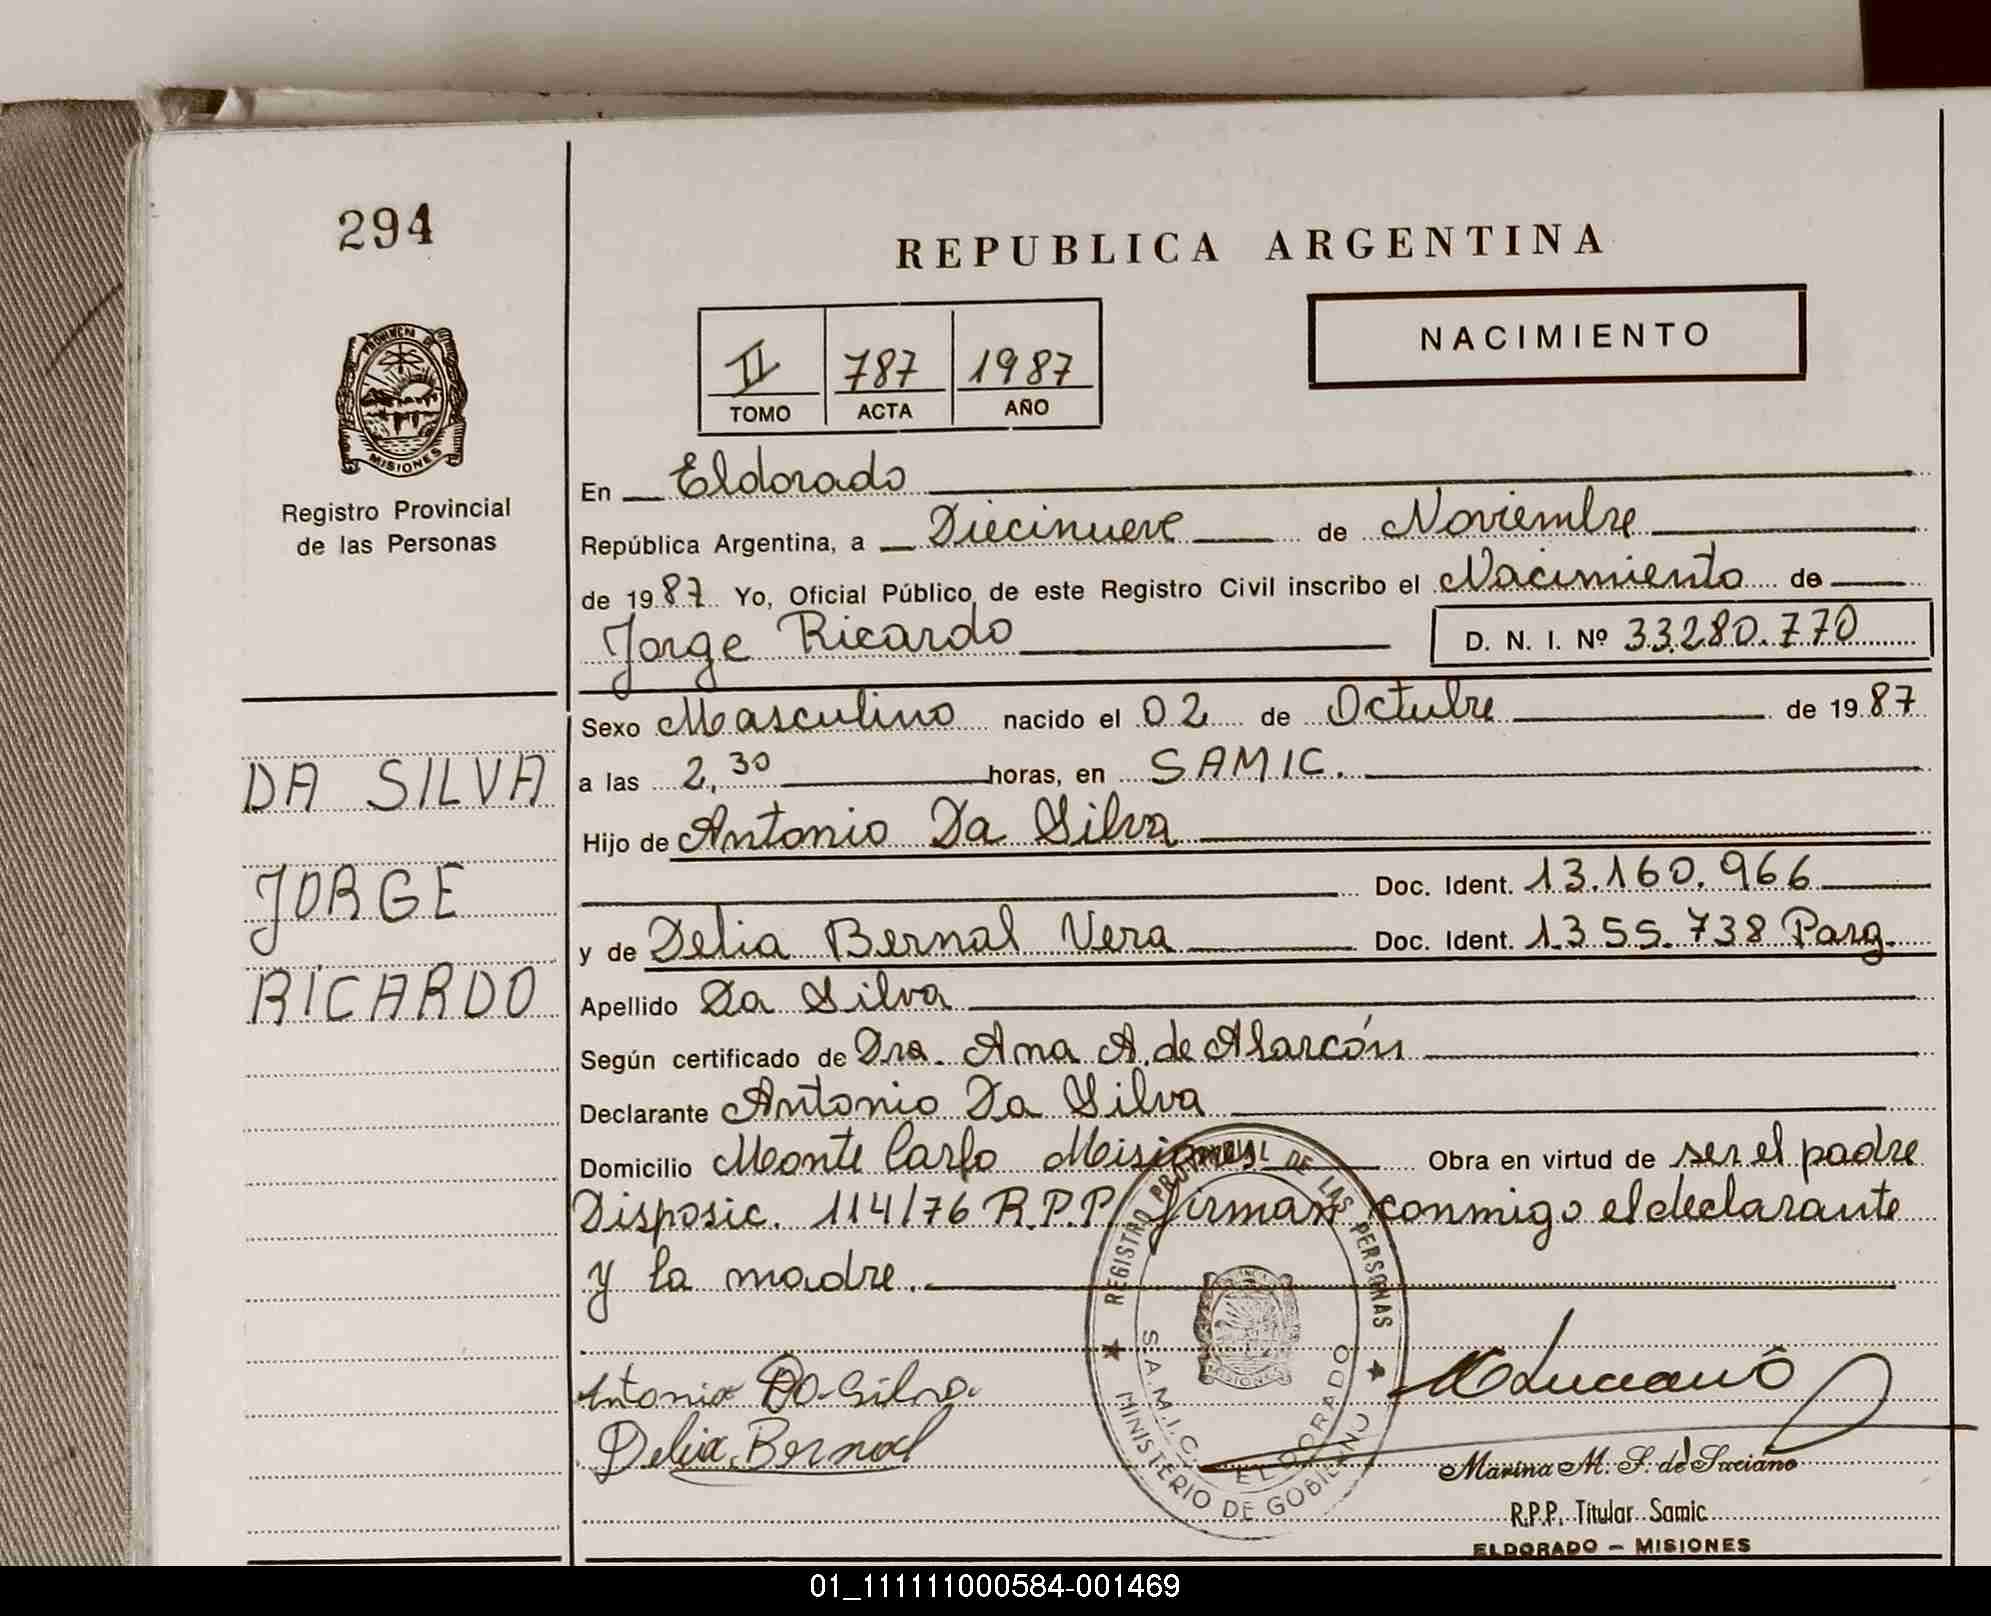 294
PROVINCIA DE
MISIONES
Registro Provincial
de las Personas
DA SILVA
JORGE
RICARDO
REPUBLICA ARGENTINA
II 787 1987
TOMO ACTA AÑO
NACIMIENTO
En Eldorado
República Argentina, a Diecinueve de Noviembre
de 1987 Yo, Oficial Público de este Registro Civil inscribo el Nacimiento de
Jorge Ricardo D. N. I. Nº 33.280.770
Sexo Masculino nacido el 02 de Octubre de 1987
a las 2,30 horas, en SAMIC.
Hijo de Antonio Da Silva
Doc. Ident. 13.160.966
y de Delia Bernal Vera Doc. Ident. 1.355.738 Parg.
Apellido Da Silva
Según certificado de Dra. Ana A. de Alarcón
Declarante Antonio Da Silva
Domicilio Monte Carlo Misiones Obra en virtud de ser el padre
Disposic. 114/76 R.P.P. firman conmigo el declarante
y la madre.
REGISTRO PROVINCIAL DE LAS PERSONAS
MISIONES
S.A.M.I.C. ELDORADO
MINISTERIO DE GOBIERNO
Antonio Da Silva
Delia Bernal
Marina M. S. de Luciano
R.P.P. Titular Samic
ELDORADO - MISIONES
01_111111000584-001469